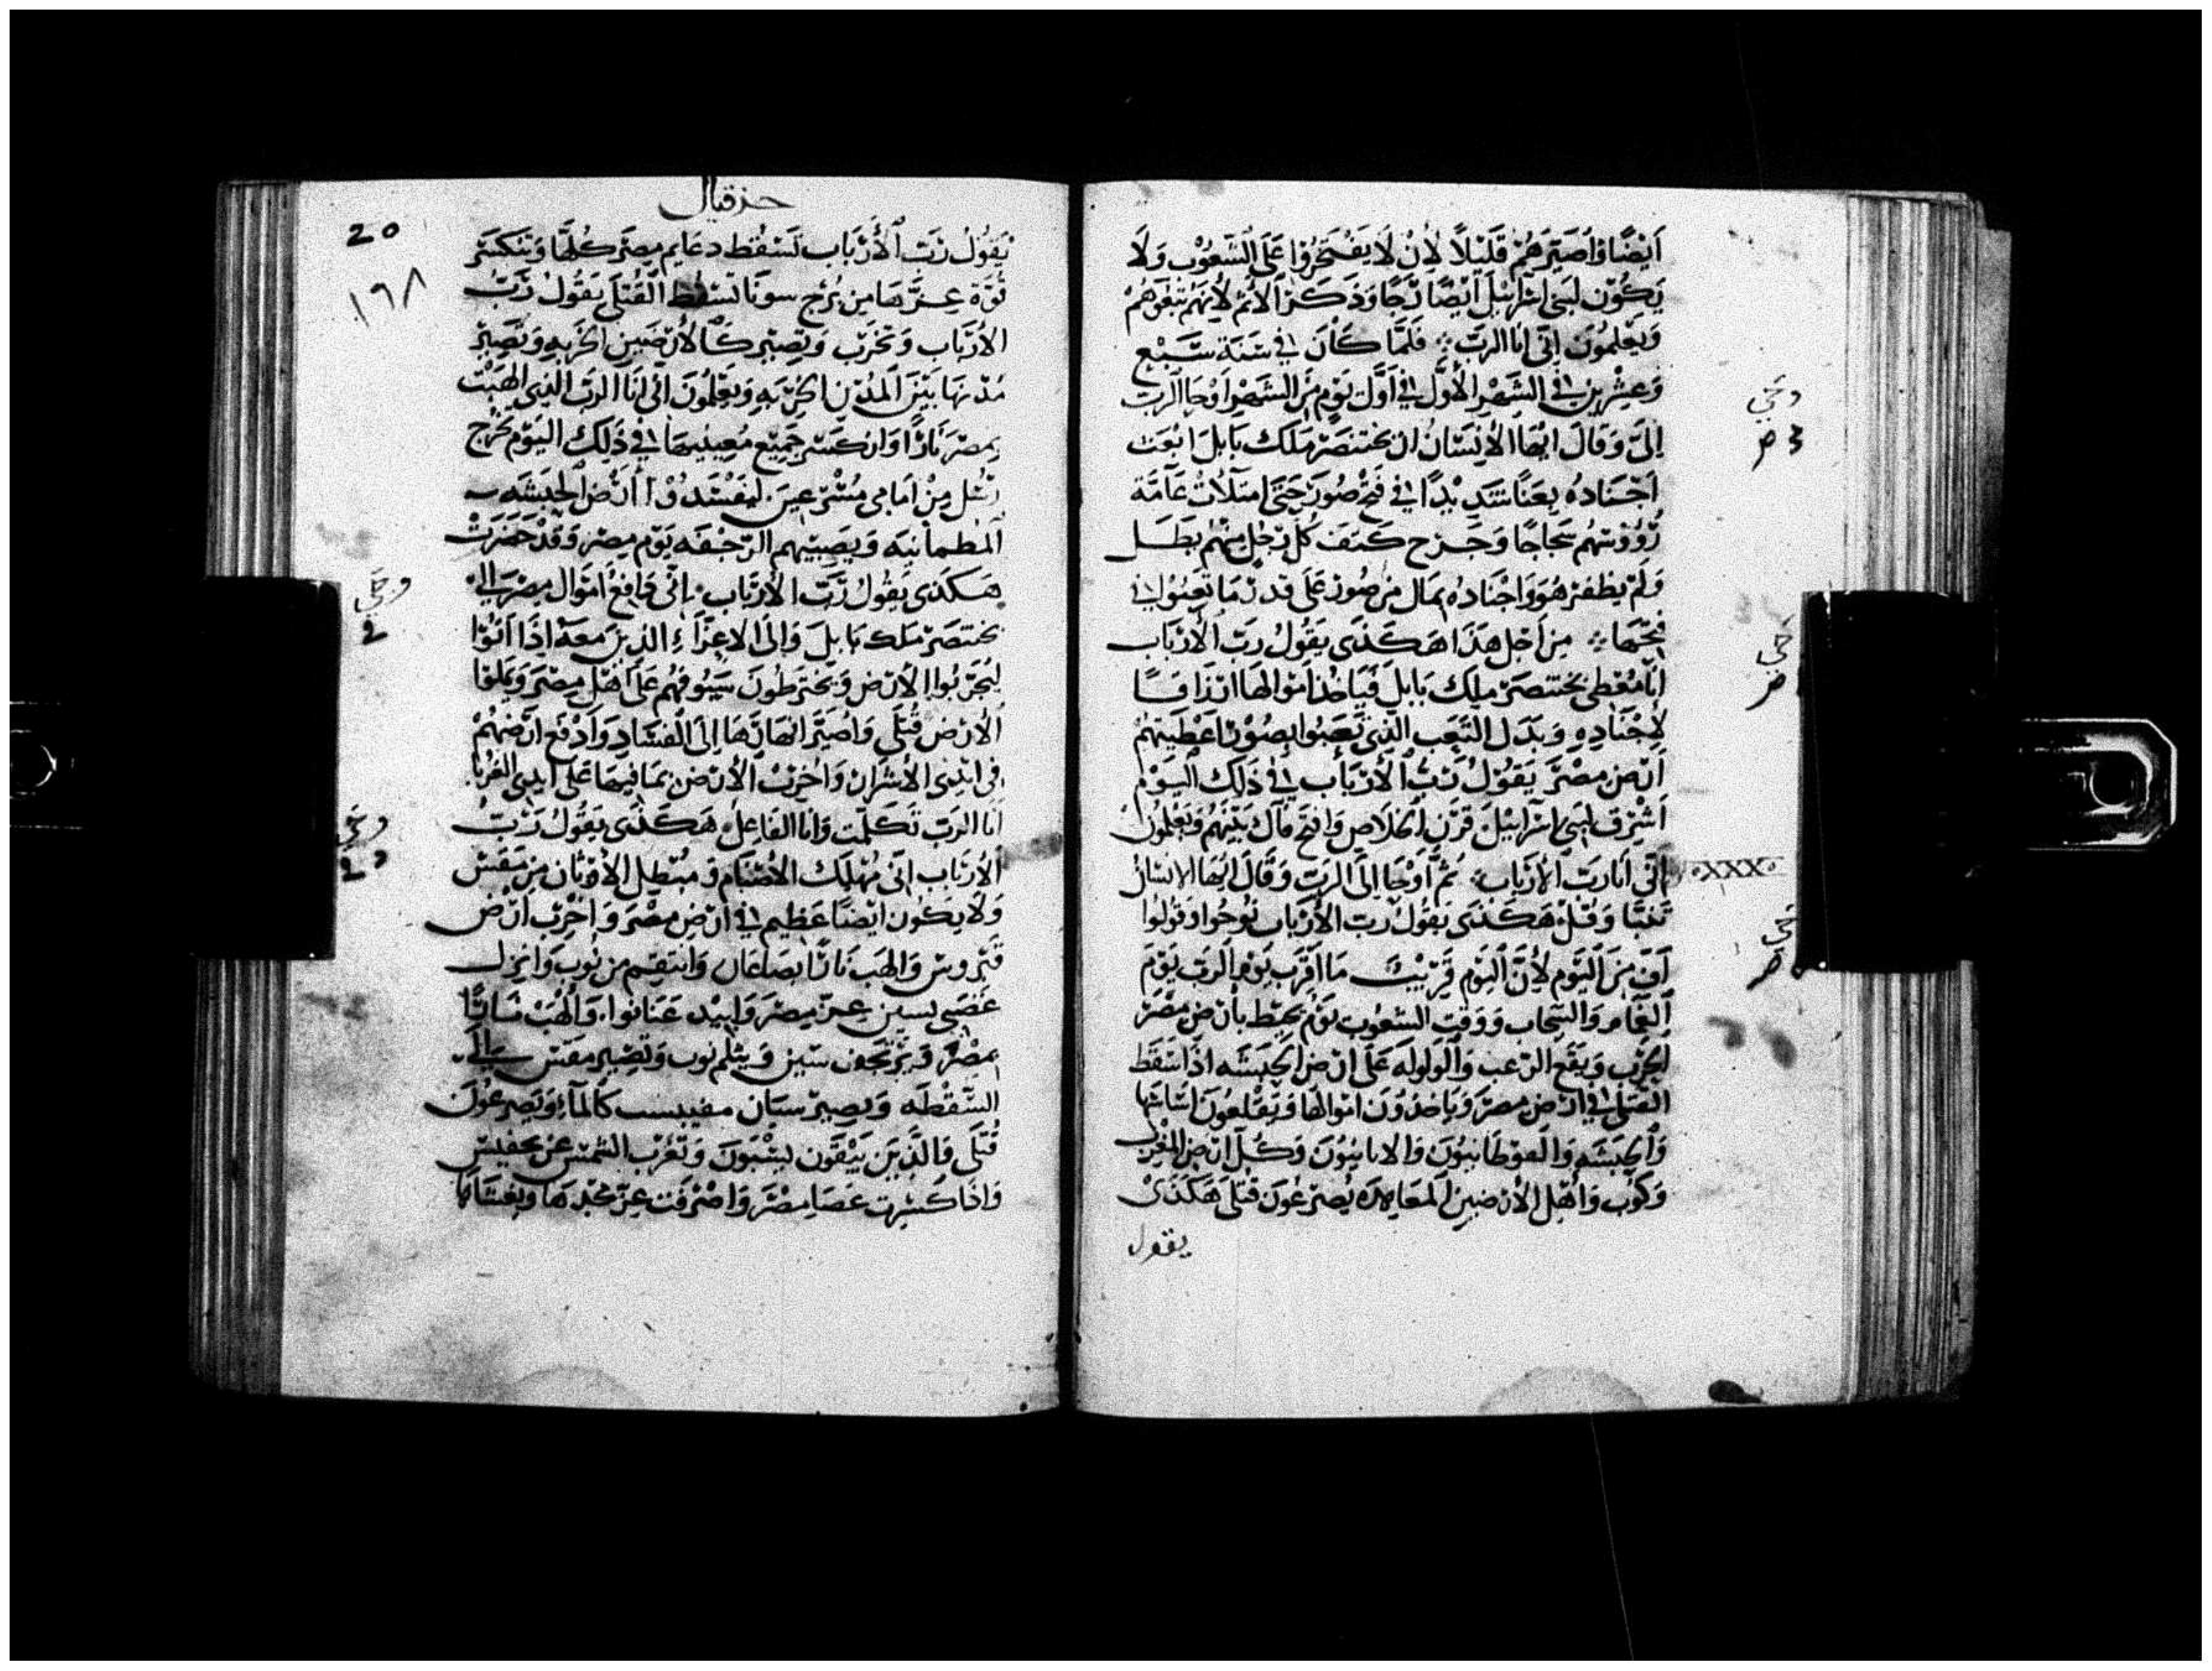 أَيْضًا وَأُصَيِّرَهُمْ قَلِيْلاً لِأنْ لَا يَفْتَخِرُوا عَلَى الشَعُوْب وَلَا
يَكُوْن لبَني اسْرَائيْل أيْضًا رَجًا وَذكرَ الأثم لأنهَم تبعَوهُمْ
وَيَعْلمُونَ انّي انَا الربّ فَلمَّا كَانَ في سَنة سَبْع
وَعِشْرين في الشَهْر الأوَّل في أوَّل يَوم مِن الشَهْر أوْحَا الرب
إلىَّ وَقالَ ايّهَا الأنسَانُ ان بختنصَرْ مَلك بَابل ابْعَث
أجْنادهُ بعثًا شَدِيْدًا في فتح صُور حَتى امتلأت عَامَّة
رُؤوسهُم وَجَرح كتف كُل رَجُل منهُم بطل
وَلمْ يظفرْ هُوَ وَاجْنَادهُ بمَال من صُور عَلى قدر مَا تعبُوا في
فتحهَا مِن أجل هَذا هَكذى يَقولُ رَب الأربَاب
انا مُعْطى بختنصَرْ مَلك بَابل فيَاخُذ أمْوالهَا ارزَاقًا
لأجْنَادِهِ وَبَدَل التعَب الذي تعَبُوا بصُوْر أعْطيتهُم
أرْض مصْرَ يَقوْلُ رَبُّ الأربَاب في ذلك اليَوْم
أشْرق لبَني اسْرَايئل قرْن الخلاص وَافتح فاك بَيْنهُم وَيَعْلمُوْنَ
اني انَا رَبّ الأربَاب ثمَّ أوْحَا إلى الربّ وَقال ايّهَا الانسَانُ
تنبَّا وَقلْ هَكذى يَقولُ رَب الأربَاب نُوحُوا وَقولوا
أفّ مِنَ اليَوم لأنَّ اليَوم قريْبٌ مَا اقرَب يَوم الرب يَوم
الغمَام وَالسَحَاب وَوَقت الشعُوب يَوم يحيط بأرْض مِصْرَ
الحَرْب وَيَقع الرعب وَالوَلوَله عَلى ارْض الحَبَشه اذا سَقط
القتلى في ارْض مصْرَ وَيَاخذوْن أموَالهَا وَيَقلعُون اسَاسَاتهَا
وَالحَبَشه
وَكوْب وَأهْل الأرْضين المعَاهدَه يُصرَعُون قتلى هَكذىْ
يقول
حزقيال
20
١٩٨
يَقُوْلُ رَبّ الأَرْبَاب تَسْقُط دعَايم مِصْرَ كُلّهَا وَتنكسَر
قُوَّة عِزّهَا مِن بُرْج سونا تسقط القُتلى يَقُوْلُ رَبّ
الأربَاب وَتخرَب وَتصِير كَالأرْضين الخربه وَتصِير
مُدْنهَا بَيْنَ المُدْن الخربَه وَيَعْلمُوْنَ اني انَا الربّ الذي الهَبْت
بمصْرَ نارًا وَانكسَر جَميْع مُعينيهَا في ذلك اليَوْم تخرج
رُسُل مِنْ أمَامي مُسْرعينَ ليُفْسدُوا أرْض الحَبشه
المطمانيه وَيصيبهم الرّجْفه يَوم مِصْر وَقدْ حَضَرَتْ
هَكذى يَقُولُ رَبّ الأربَاب انّي دَافعُ أموَال مِصْرَ الى
بختصَرْ مَلك بَابل وَإلى الاعزاء الذينَ مَعَهُ اذا اتوْا
ليُخربُوا الأرْض وَيَخترطونَ سُيُوفهُم عَلى أهْل مِصْرَ وَيملوْا
الأرْض قُتلى وَأصَيّر انهَارَهَا إلى الفسَاد وَأدْفع ارْضهُمْ
في ايْدي الأشرَار وَأخربُ الأرْض بمَا فيهَا عَلى ايدي الغرْبا
انا الربّ تكلمت وَانا الفاعلُ هَكذى يَقُولُ رَبّ
الأربَاب اني مُهْلك الأصْنَام وَمبْطل الأوْثان مِن مَنْفس
وَلا يَكون ايْضًا عَظيم في ارْض مصْرَ وَاخْرب ارْض
فتروس وَالهب نارًا بصَاعَان وَانتقم من نُوب وَانزل
غضَبي لسين عِز مِصْرَ وَابيْد عَنانوا وَالهبُ نارًا
بمصْرَ وَترْتجف سين وَيثلم نوب وَتصير مفس الى
السّقطه
قُتلى وَالذين يَبْقون يسْبَون وَتغرُب الشمْس عن تحفيس
وَاذا كسْرت عَصَا مِصْرَ وَاضرفت عِزّ مجْدهَا وَيغشاهَا